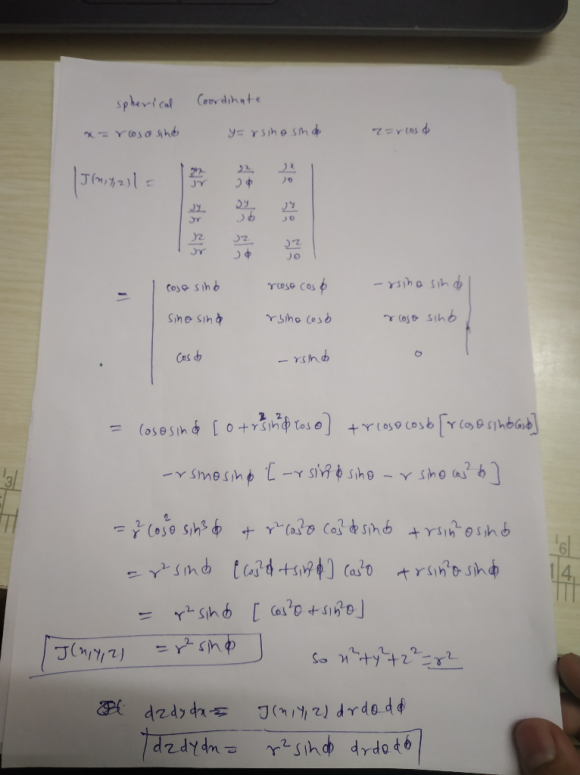 spherical Coordinate
x = r cosθ sinϕ y = r sinθ sinϕ z = r cosϕ
|J(x,y,z)| = | ∂x/∂r ∂x/∂ϕ ∂x/∂θ |
| ∂y/∂r ∂y/∂ϕ ∂y/∂θ |
| ∂z/∂r ∂z/∂ϕ ∂z/∂θ |
= | cosθ sinϕ r cosθ cosϕ - r sinθ sinϕ |
| sinθ sinϕ r sinθ cosϕ r cosθ sinϕ |
| cosϕ - r sinϕ 0 |
= cosθ sinϕ [0 + r² sin²ϕ cosθ] + r cosθ cosϕ [r cosθ sinϕ cosϕ]
- r sinθ sinϕ [- r sin²ϕ sinθ - r sinθ cos²ϕ]
= r² cos²θ sin³ϕ + r² cos²θ cos²ϕ sinϕ + r sin²θ sinϕ
= r² sinϕ [cos²ϕ + sin²ϕ] cos²θ + r sin²θ sinϕ
= r² sinϕ [cos²θ + sin²θ]
J(x,y,z) = r² sinϕ so x² + y² + z² = r²
dzdydx = J(x,y,z) drdθdϕ
dzdydx = r² sinϕ drdθdϕ
16
4